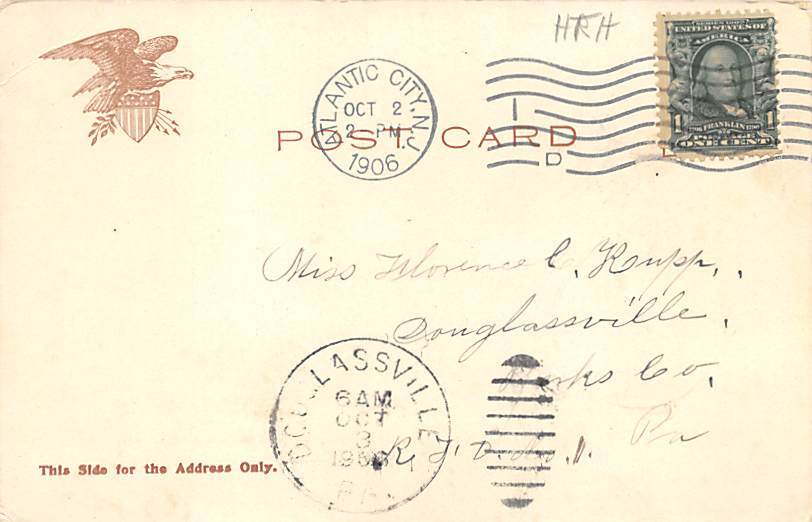 HRH
SERIES 1902
UNITED STATES OF
AMERICA
1706 FRANKLIN 1790
1 1
ONE CENT
ATLANTIC CITY, N.J.
OCT 2
2 PM
1906
D
POST CARD
Miss Florence C. Kupp,
Douglassville,
Berks Co,
Pa
R. F. D. No. 1.
DOUGLASSVILLE
6AM
OCT
3
1906
PA.
This Side for the Address Only.